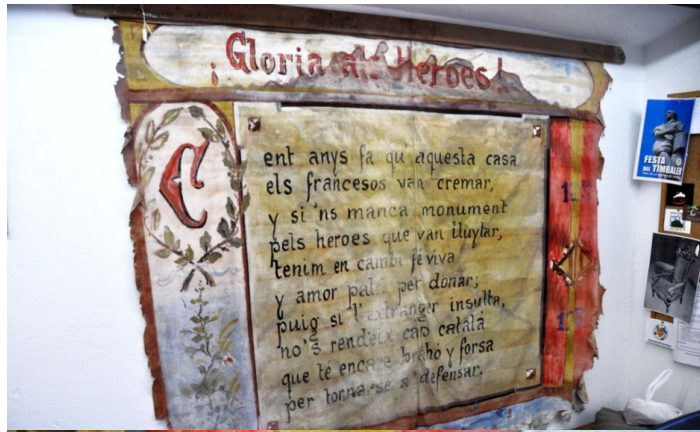 ¡Gloria als Heroes!
C
ent anys fa qu'aquesta casa
els francesos van cremar,
y si 'ns manca monument
pels heroes que van lluytar,
tenim en cambi fé viva
y amor patri per donar;
puig si l'extranger insulta,
no's rendeix cap catalá
que té encare brahó y forsa
per tornarse a defensar.
FESTA
DEL TIMBALER